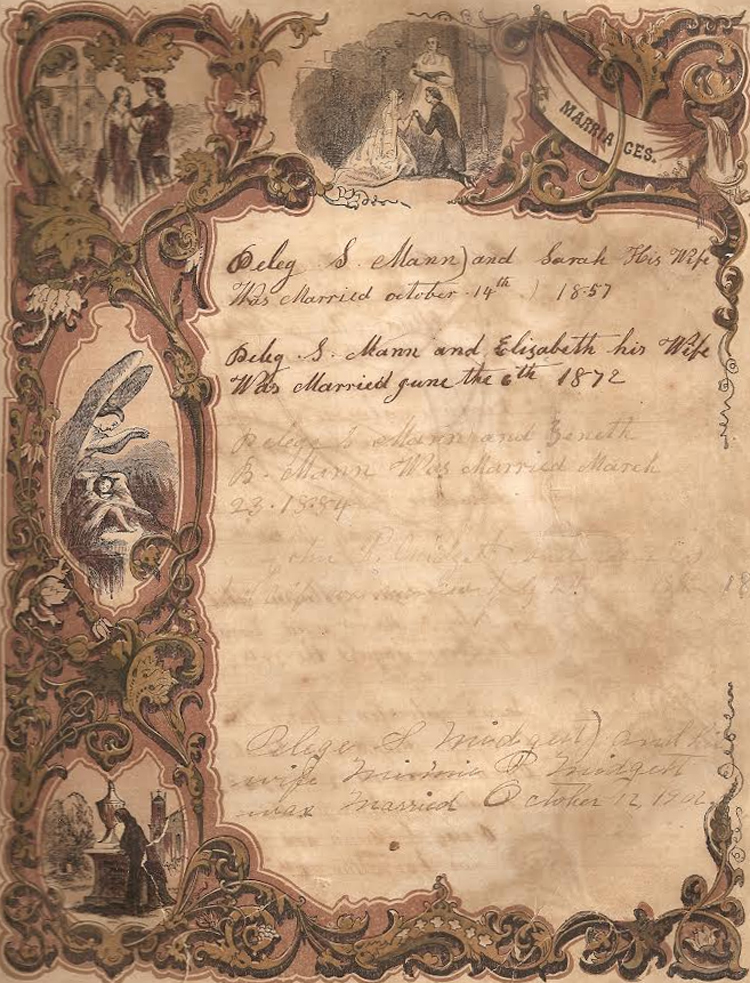 MARRIAGES.
Peleg S. Mann) and Sarah His Wife
Was Married october 14th ) 1857
Peleg . S. Mann and Elizabeth his Wife
Was Married june the 6th 1872
Pelege S Mann and Zeneth
B. Mann Was Married March
23. 1884
John P. Midgett and
wife
Pelege S Midgett) and his
wife Minnie P Midgett
was Married October 12, 1902